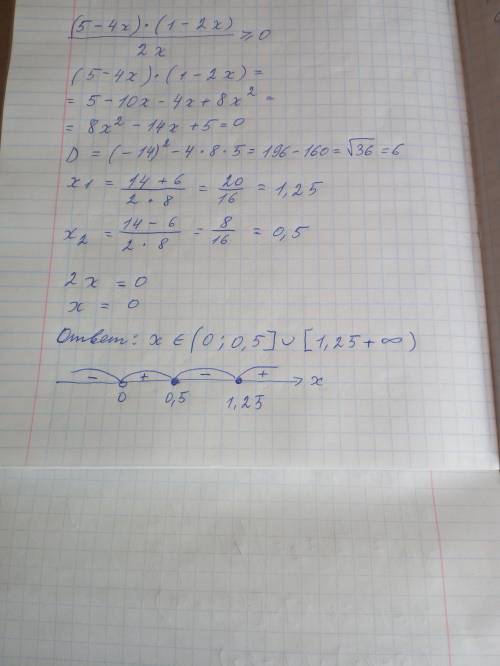 (5-4x)·(1-2x) / 2x ≥ 0
(5-4x)·(1-2x) =
= 5-10x-4x+8x² =
= 8x²-14x+5=0
D = (-14)²-4·8·5=196-160=√36=6
x₁ = (14+6)/(2·8) = 20/16 = 1,25
x₂ = (14-6)/(2·8) = 8/16 = 0,5
2x = 0
x = 0
Ответ: x ∈ (0; 0,5] ∪ [1,25+∞)
- + - + x
0 0,5 1,25